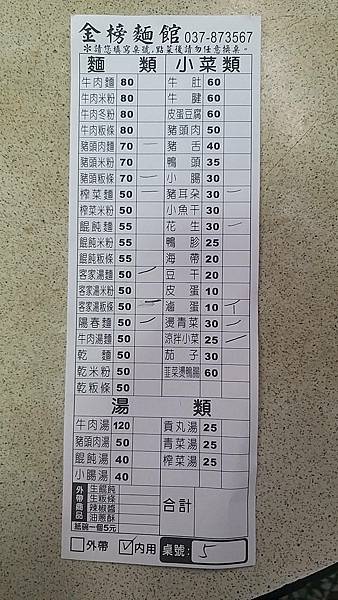 金榜麵館 037-873567
※請您填寫桌號,點菜後請勿任意換桌。
麵 類 小菜類
牛肉麵 80 牛肚 60
牛肉米粉 80 牛腱 60
牛肉冬粉 80 皮蛋豆腐 60
牛肉粄條 80 豬頭肉 50
豬頭肉麵 70 一 豬舌 40
豬頭米粉 70 鴨頭 35
豬頭粄條 70 一 小腸 30
榨菜麵 50 一 豬耳朵 30 一
榨菜米粉 50 小魚干 30
餛飩麵 55 花生 30 一
餛飩米粉 55 鴨胗 25
餛飩粄條 55 海帶 20
客家湯麵 50 一 豆干 20
客家湯米粉 50 皮蛋 10
客家湯粄條 50 一 滷蛋 10
陽春麵 50 一 燙青菜 30 一
牛肉湯麵 50 涼拌小菜 25 一
乾麵 50 茄子 30
乾米粉 50 韮菜燙鴨腸 60
乾粄條 50
湯 類
牛肉湯 120 貢丸湯 25
豬頭肉湯 50 青菜湯 25
餛飩湯 40 榨菜湯 25
小腸湯 40
外帶商品 生餛飩
生粄條
辣椒醬
油蔥酥
紙碗一個5元
合計
外帶 內用 桌號: 5